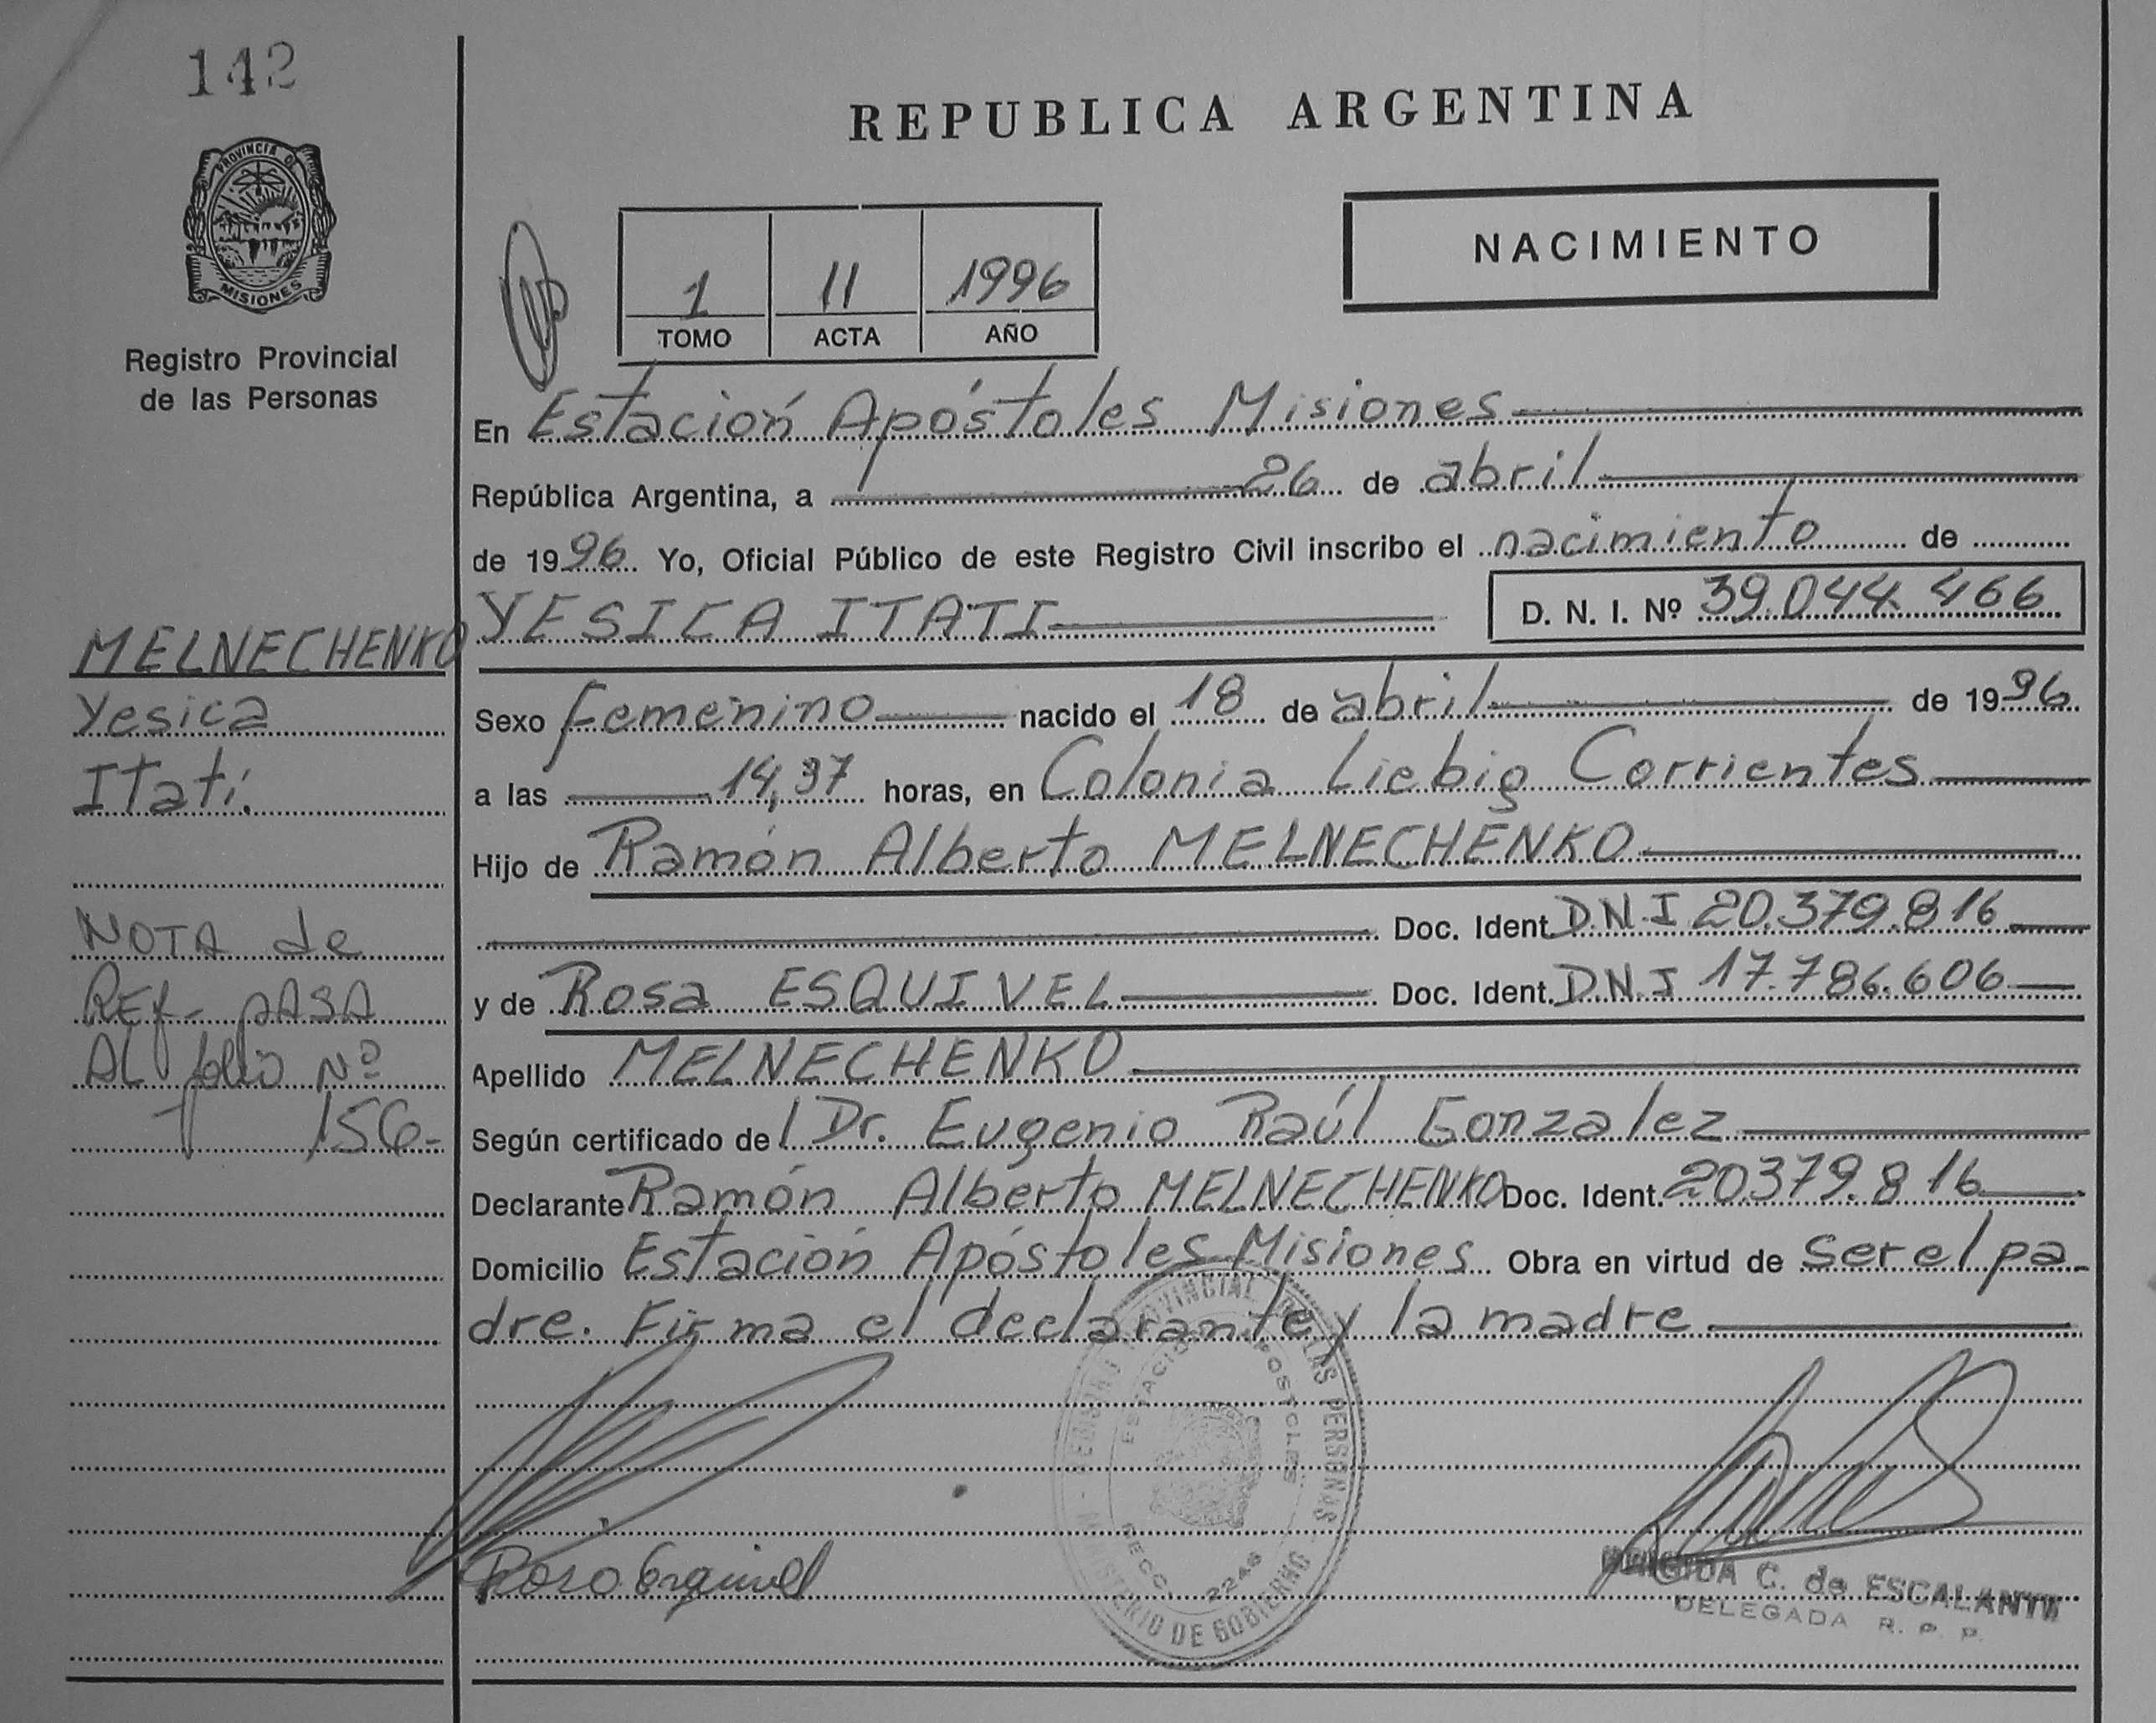 142
REPUBLICA ARGENTINA
PROVINCIA DE
MISIONES
Registro Provincial
de las Personas
NACIMIENTO
1 11 1996
TOMO ACTA AÑO
En Estación Apóstoles Misiones
República Argentina, a 26 de abril
de 1996. Yo, Oficial Público de este Registro Civil inscribo el nacimiento de
YESICA ITATI D. N. I. Nº 39.044.466
MELNECHENKO
Yesica
Itatí.
Sexo femenino nacido el 18 de abril de 1996.
a las 14,37 horas, en Colonia Liebig Corrientes
Hijo de Ramón Alberto MELNECHENKO
Doc. Ident. D.N.I 20.379.816
y de Rosa ESQUIVEL Doc. Ident. D.N.I 17.786.606
Apellido MELNECHENKO
Según certificado del Dr. Eugenio Raúl Gonzalez
Declarante Ramón Alberto MELNECHENKO Doc. Ident. 20379.816
Domicilio Estación Apóstoles Misiones Obra en virtud de ser el pa-
dre. Firma el declarante y la madre
NOTA de
REf- pASA
AL folio Nº
156-
Rosa Esquivel
REGISTRO PROVINCIAL DE LAS PERSONAS
ESTACION APOSTOLES
SECC. 2246
MINISTERIO DE GOBIERNO
C. de ESCALANTE
DELEGADA R. P. P.